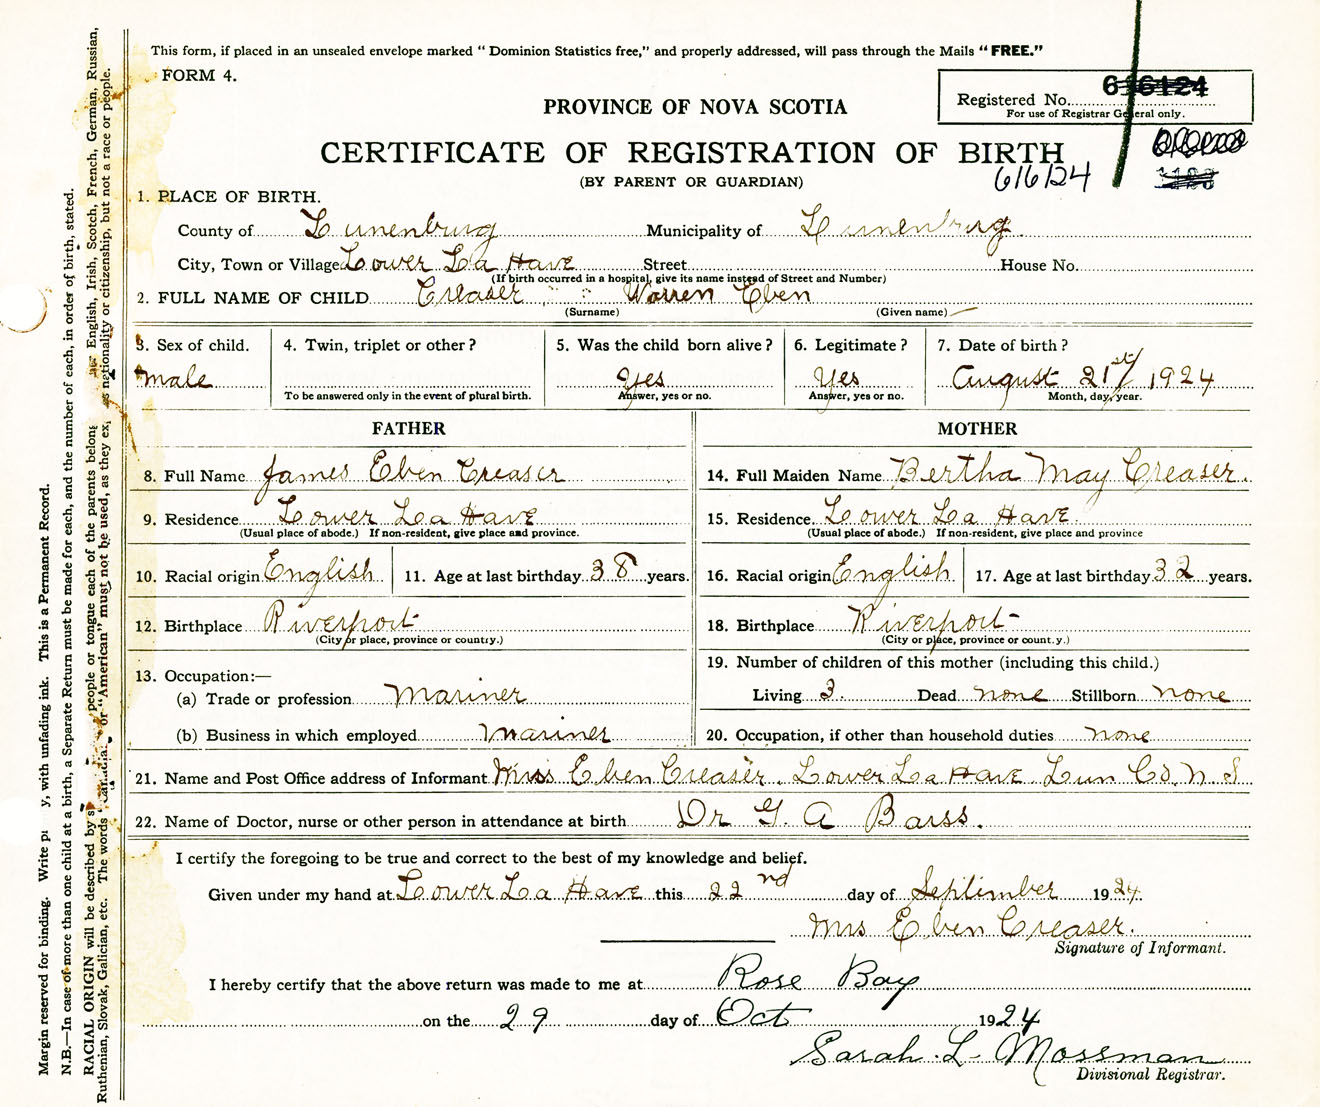 This form, if placed in an unsealed envelope marked “ Dominion Statistics free,” and properly addressed, will pass through the Mails “ FREE.”
FORM 4.
PROVINCE OF NOVA SCOTIA
Registered No. 616124
For use of Registrar General only.
CERTIFICATE OF REGISTRATION OF BIRTH
616124
(BY PARENT OR GUARDIAN)
1. PLACE OF BIRTH.
County of Lunenburg Municipality of Lunenburg
City, Town or Village Lower La Have Street House No.
(If birth occurred in a hospital, give its name instead of Street and Number)
2. FULL NAME OF CHILD Creaser " " Warren Eben
(Surname) (Given name)
3. Sex of child. 4. Twin, triplet or other ? 5. Was the child born alive ? 6. Legitimate ? 7. Date of birth ?
male Yes Yes August 21st/ 1924
To be answered only in the event of plural birth. Answer, yes or no. Answer, yes or no. Month, day, year.
FATHER MOTHER
8. Full Name James Eben Creaser 14. Full Maiden Name Bertha May Creaser.
9. Residence Lower La Have 15. Residence. Lower La Have.
(Usual place of abode.) If non-resident, give place and province. (Usual place of abode.) If non-resident, give place and province
10. Racial origin English 11. Age at last birthday 38 years. 16. Racial origin English 17. Age at last birthday 32 years.
12. Birthplace Riverport 18. Birthplace Riverport
(City or place, province or country.) (City or place, province or count.y.)
13. Occupation:— 19. Number of children of this mother (including this child.)
(a) Trade or profession Mariner Living 3. Dead none Stillborn none
(b) Business in which employed Mariner 20. Occupation, if other than household duties none
21. Name and Post Office address of Informant Mrs Eben Creaser. Lower La Have Lun Co. N. S
22. Name of Doctor, nurse or other person in attendance at birth Dr G. A Barss.
I certify the foregoing to be true and correct to the best of my knowledge and belief.
Given under my hand at Lower La Have this 22nd day of September 1924.
Mrs Eben Creaser.
Signature of Informant.
I hereby certify that the above return was made to me at Rose Bay
on the 29 day of Oct 1924
Sarah L- Mossman
Divisional Registrar.
Margin reserved for binding. Write p y, with unfading ink. This is a Permanent Record.
N.B.—In case of more than one child at a birth, a Separate Return must be made for each, and the number of each, in order of birth, stated.
RACIAL ORIGIN will be described by s people or tongue each of the parents belong English, Irish, Scotch, French, German, Russian,
Ruthenian, Slovak, Galician, etc. The words “Canadian” or “American” must not be used, as they ex s nationality or citizenship, but not a race or people.